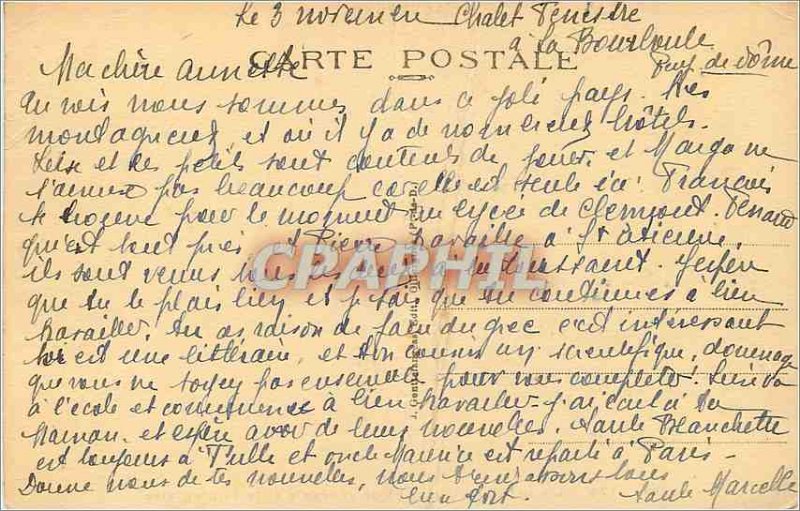 Le 3 novembre Chalet Tenestre
à la Bourboule
CARTE POSTALE
Puy de Dôme
Ma chère Annette
Tu vois nous sommes dans ce joli pays. très
montagneux et où il y a de nombreux hôtels.
et les petits sont contents de jouer et Margo ne
s'amuse pas beaucoup car elle est seule ici. François
se trouve pour le moment au lycée de Clermont-Ferrand
qui est tout près et Pierre travaille à St Etienne.
ils sont venus tous les deux à la Toussaint. J'espère
que tu te plais bien et je sais que tu continues à bien
travailler. Tu as raison de faire du grec c'est intéressant
est une littéraire, et ton cousin un scientifique, dommage
que vous ne soyez pas ensemble pour vous compléter.
à l'école et commence à bien travailler - j'ai écrit à ta
Maman et espère avoir de leurs nouvelles. Tante Blanchette
est toujours à Tulle et oncle Maurice est reparti à Paris -
Donne nous de tes nouvelles, nous t'embrassons tous
bien fort. Tante Marcelle
CPAPHIL